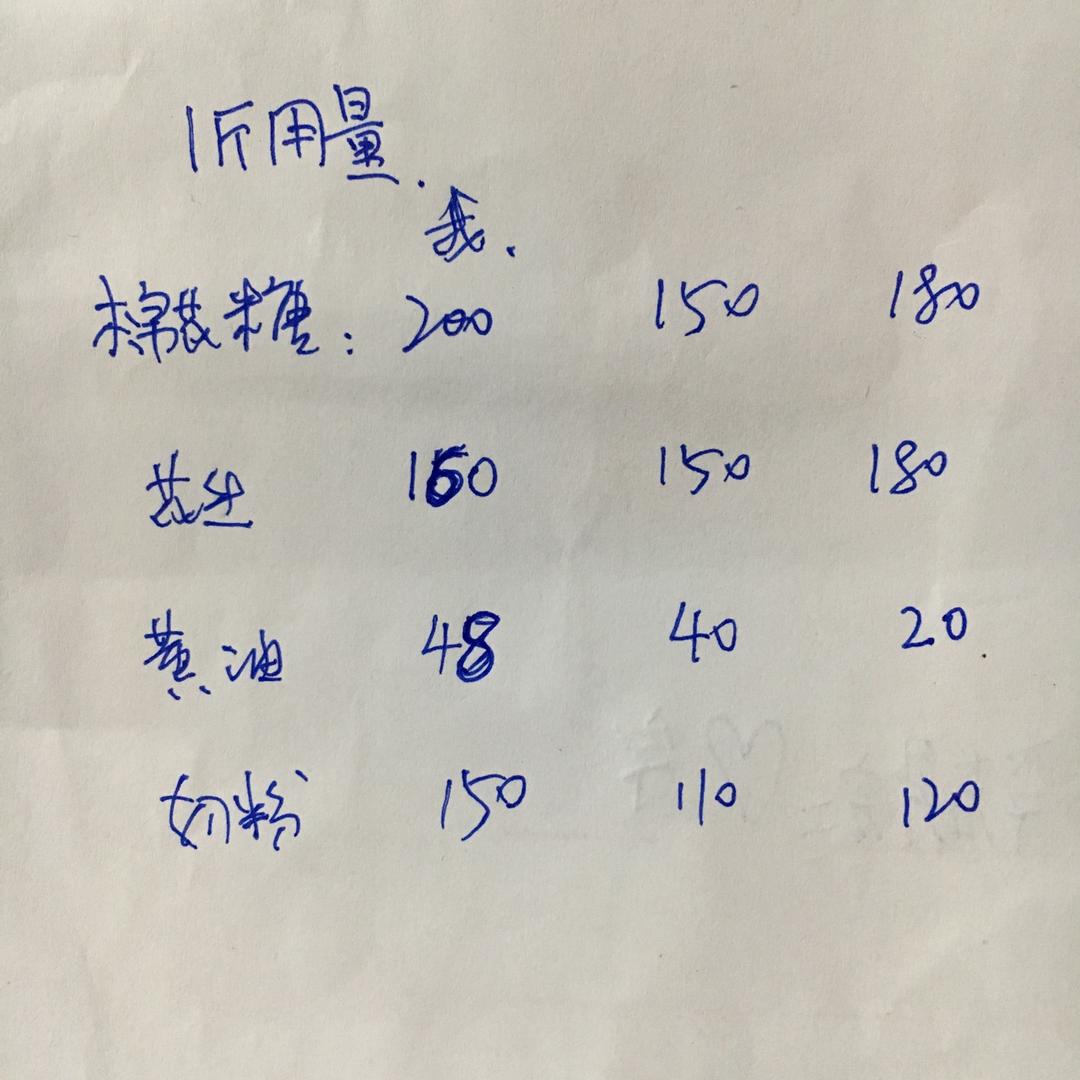 1斤用量.
我.
棉花糖: 200 150 180
花生 160 150 180
黄油 48 40 20
奶粉 150 110 120